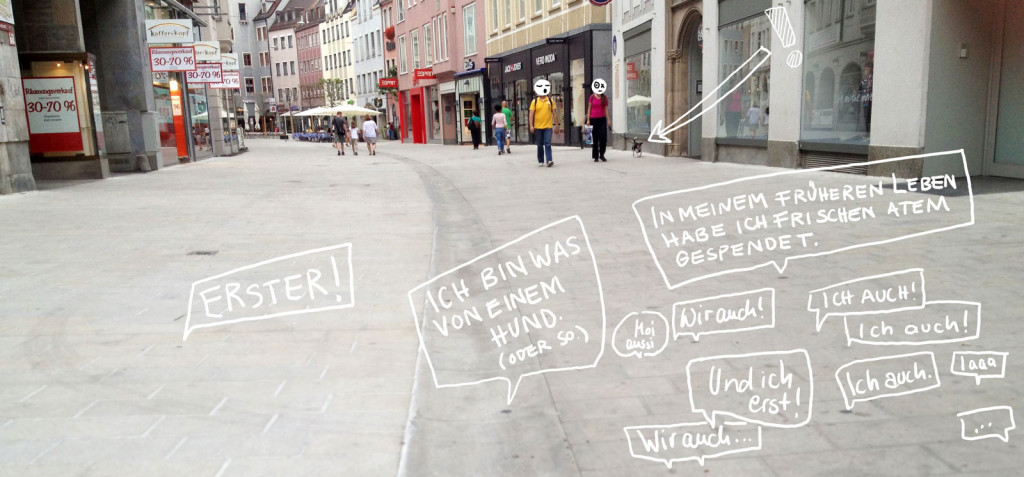 Kaffee-Kopf
Räumungsverkauf
30-70 %
30-70 %
30-70 %
Räumungsverkauf
30-70 %
ESPRIT
ESPRIT
JACK&JONES
VERO MODA
IN MEINEM FRÜHEREN LEBEN
HABE ICH FRISCHEN ATEM
GESPENDET.
ERSTER!
ICH BIN WAS
VON EINEM
HUND.
(ODER SO.)
Moi
aussi
Wir auch!
ICH AUCH!
Ich auch!
Und ich
erst!
Ich auch.
Iaaa
Wir auch...
...